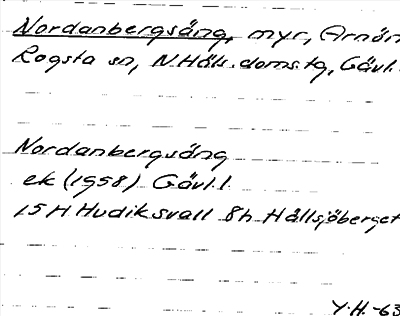 Nordanbergsäng, myr, Arnön
Rogsta sn, N.Häls.doms.tg, Gävl.
Nordanbergsäng
ek (1958) Gävl.l.
15 H Hudiksvall 8h Hällsjöberget
Y.H. -63